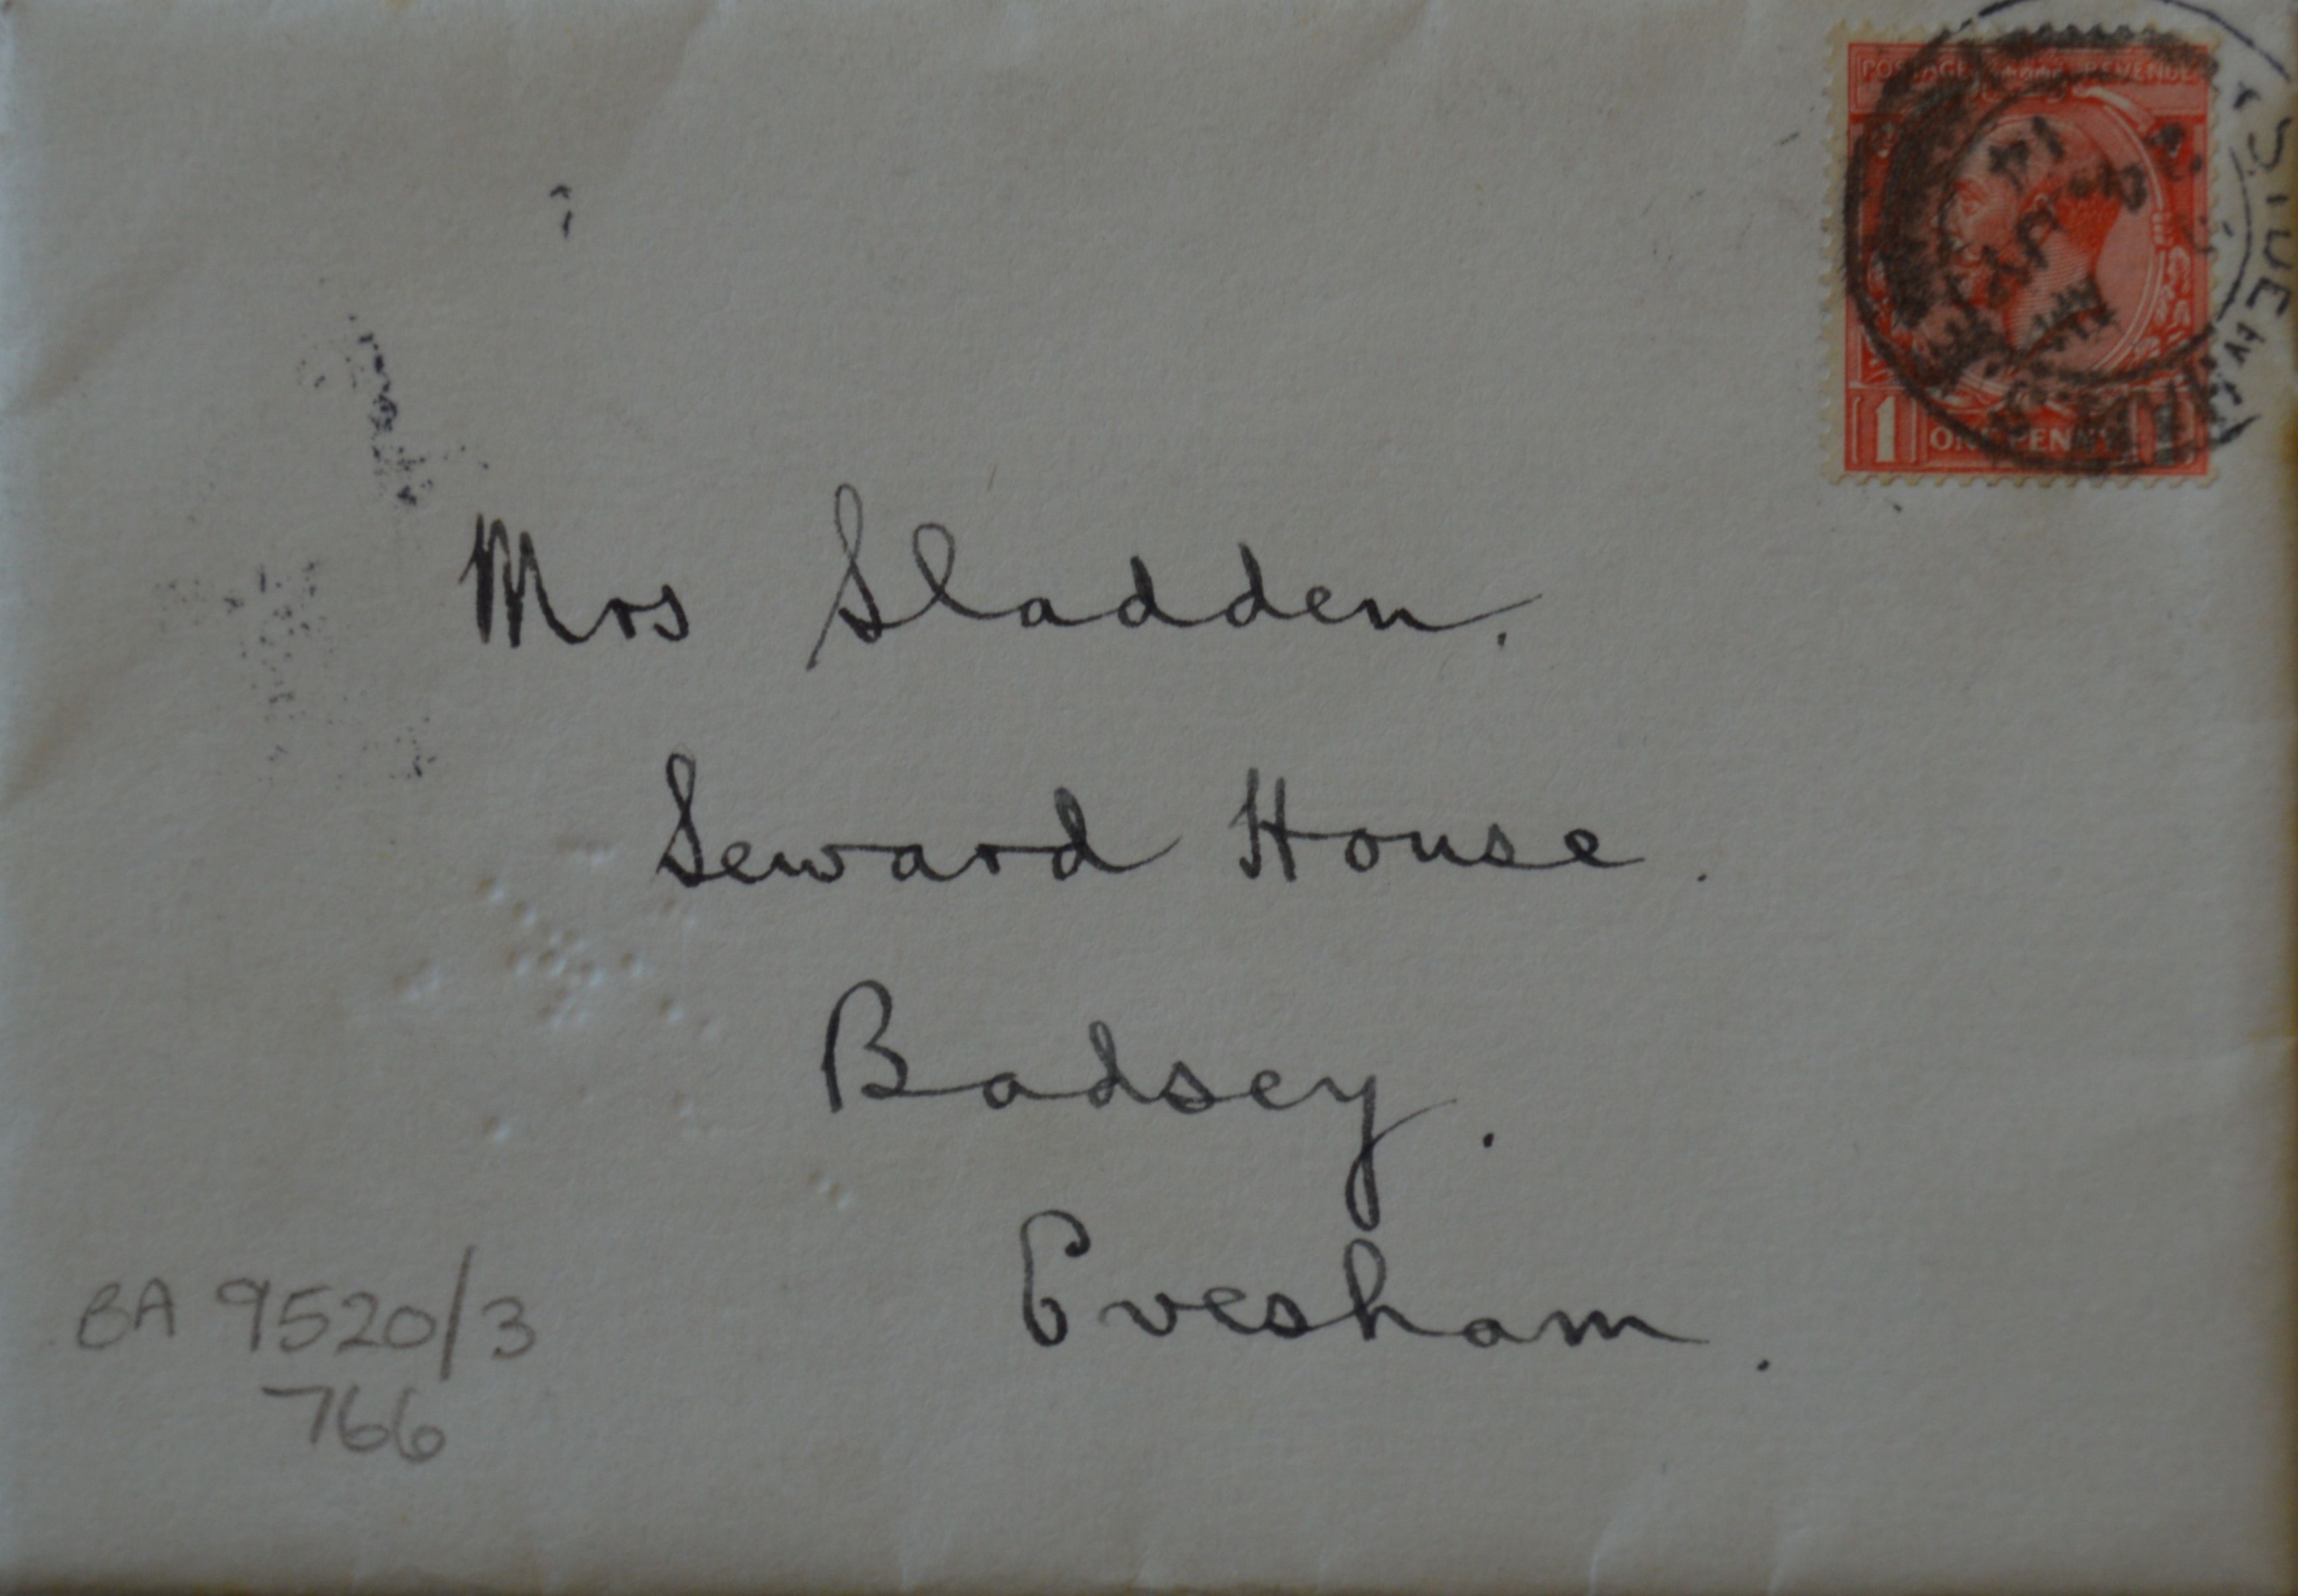 POSTAGE REVENUE
14
1 ONE PENNY 1
Mrs Sladden.
Seward House.
Badsey.
Evesham.
BA 9520/3
766